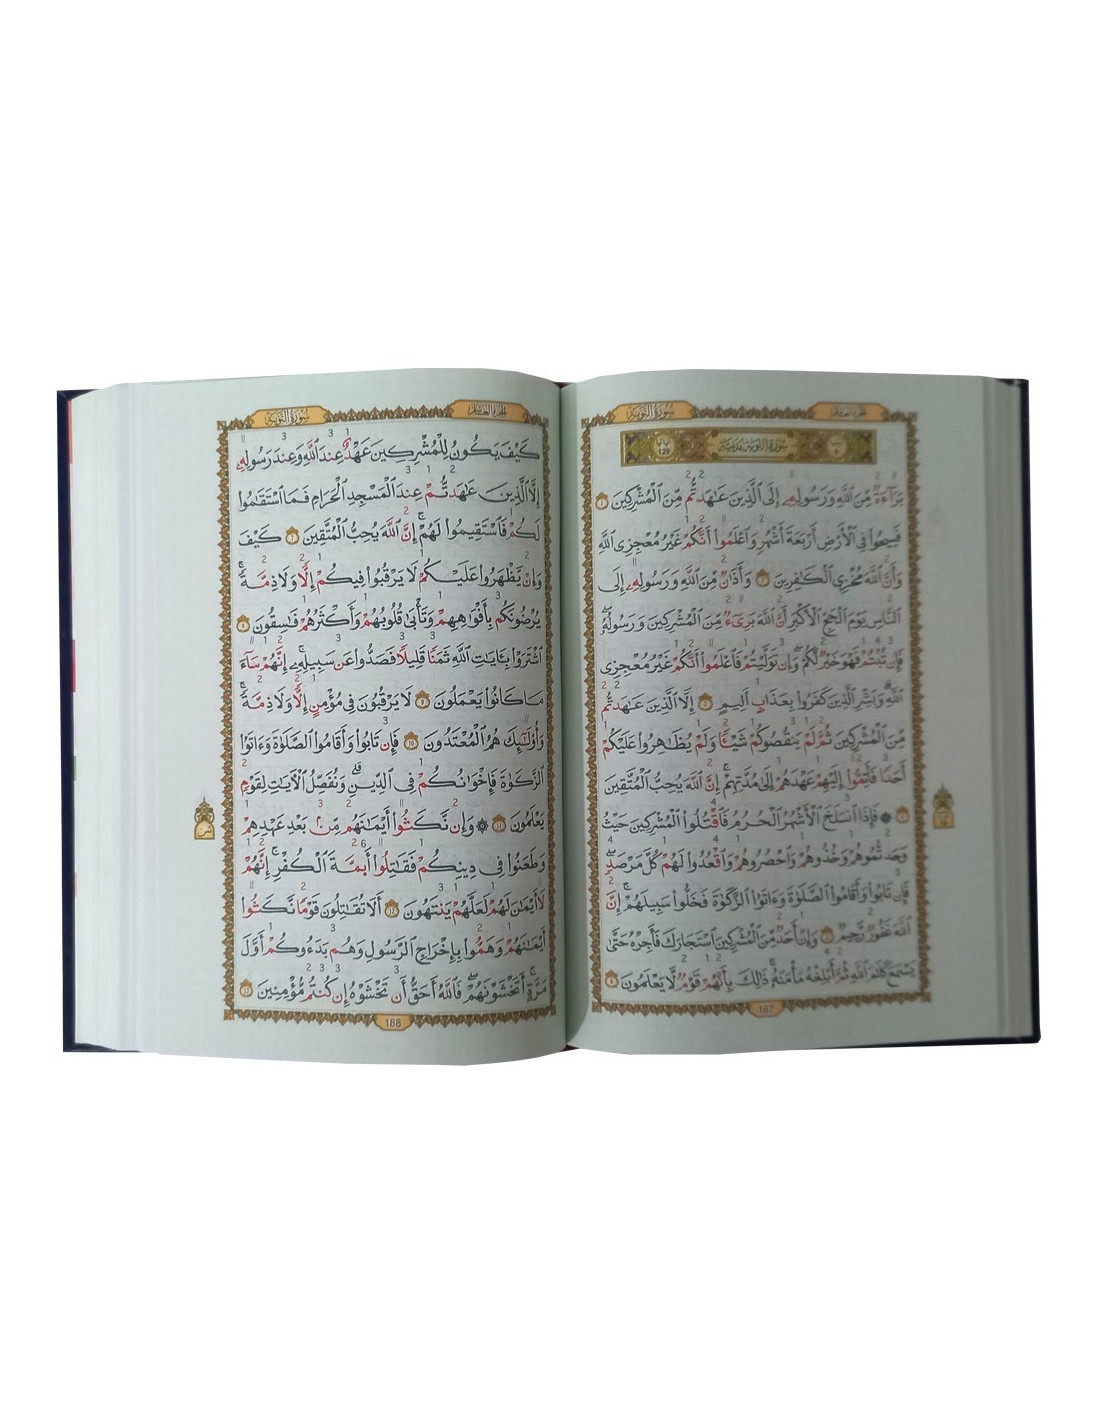 الجزء العاشر سورة التوبة
سورة التوبة مدنية
129
بَرَآءَةٌ مِّنَ ٱللَّهِ وَرَسُولِهِۦٓ إِلَى ٱلَّذِينَ عَٰهَدتُّم مِّنَ ٱلْمُشْرِكِينَ ١
فَسِيحُوا۟ فِى ٱلْأَرْضِ أَرْبَعَةَ أَشْهُرٍ وَٱعْلَمُوٓا۟ أَنَّكُمْ غَيْرُ مُعْجِزِى ٱللَّهِ
وَأَنَّ ٱللَّهَ مُخْزِى ٱلْكَٰفِرِينَ ٢ وَأَذَٰنٌ مِّنَ ٱللَّهِ وَرَسُولِهِۦٓ إِلَى
ٱلنَّاسِ يَوْمَ ٱلْحَجِّ ٱلْأَكْبَرِ أَنَّ ٱللَّهَ بَرِىٓءٌ مِّنَ ٱلْمُشْرِكِينَ وَرَسُولُهُۥ
فَإِن تُبْتُمْ فَهُوَ خَيْرٌ لَّكُمْ وَإِن تَوَلَّيْتُمْ فَٱعْلَمُوٓا۟ أَنَّكُمْ غَيْرُ مُعْجِزِى
ٱللَّهِ وَبَشِّرِ ٱلَّذِينَ كَفَرُوا۟ بِعَذَابٍ أَلِيمٍ ٣ إِلَّا ٱلَّذِينَ عَٰهَدتُّم
مِّنَ ٱلْمُشْرِكِينَ ثُمَّ لَمْ يَنقُصُوكُمْ شَيْـًٔا وَلَمْ يُظَٰهِرُوا۟ عَلَيْكُمْ
أَحَدًا فَأَتِمُّوٓا۟ إِلَيْهِمْ عَهْدَهُمْ إِلَىٰ مُدَّتِهِمْ إِنَّ ٱللَّهَ يُحِبُّ ٱلْمُتَّقِينَ
٤ ۞ فَإِذَا ٱنسَلَخَ ٱلْأَشْهُرُ ٱلْحُرُمُ فَٱقْتُلُوا۟ ٱلْمُشْرِكِينَ حَيْثُ
وَجَدتُّمُوهُمْ وَخُذُوهُمْ وَٱحْصُرُوهُمْ وَٱقْعُدُوا۟ لَهُمْ كُلَّ مَرْصَدٍ
فَإِن تَابُوا۟ وَأَقَامُوا۟ ٱلصَّلَوٰةَ وَءَاتَوُا۟ ٱلزَّكَوٰةَ فَخَلُّوا۟ سَبِيلَهُمْ إِنَّ
ٱللَّهَ غَفُورٌ رَّحِيمٌ ٥ وَإِنْ أَحَدٌ مِّنَ ٱلْمُشْرِكِينَ ٱسْتَجَارَكَ فَأَجِرْهُ حَتَّىٰ
يَسْمَعَ كَلَٰمَ ٱللَّهِ ثُمَّ أَبْلِغْهُ مَأْمَنَهُۥ ذَٰلِكَ بِأَنَّهُمْ قَوْمٌ لَّا يَعْلَمُونَ ٦
187
الجزء العاشر سورة التوبة
كَيْفَ يَكُونُ لِلْمُشْرِكِينَ عَهْدٌ عِندَ ٱللَّهِ وَعِندَ رَسُولِهِۦٓ
إِلَّا ٱلَّذِينَ عَٰهَدتُّمْ عِندَ ٱلْمَسْجِدِ ٱلْحَرَامِ فَمَا ٱسْتَقَٰمُوا۟
لَكُمْ فَٱسْتَقِيمُوا۟ لَهُمْ إِنَّ ٱللَّهَ يُحِبُّ ٱلْمُتَّقِينَ ٧ كَيْفَ
وَإِن يَظْهَرُوا۟ عَلَيْكُمْ لَا يَرْقُبُوا۟ فِيكُمْ إِلًّا وَلَا ذِمَّةً
يُرْضُونَكُم بِأَفْوَٰهِهِمْ وَتَأْبَىٰ قُلُوبُهُمْ وَأَكْثَرُهُمْ فَٰسِقُونَ ٨
ٱشْتَرَوْا۟ بِـَٔايَٰتِ ٱللَّهِ ثَمَنًا قَلِيلًا فَصَدُّوا۟ عَن سَبِيلِهِۦٓ إِنَّهُمْ سَآءَ
مَا كَانُوا۟ يَعْمَلُونَ ٩ لَا يَرْقُبُونَ فِى مُؤْمِنٍ إِلًّا وَلَا ذِمَّةً
وَأُو۟لَٰٓئِكَ هُمُ ٱلْمُعْتَدُونَ ١٠ فَإِن تَابُوا۟ وَأَقَامُوا۟ ٱلصَّلَوٰةَ وَءَاتَوُا۟
ٱلزَّكَوٰةَ فَإِخْوَٰنُكُمْ فِى ٱلدِّينِ وَنُفَصِّلُ ٱلْـَٔايَٰتِ لِقَوْمٍ
يَعْلَمُونَ ١١ ۞ وَإِن نَّكَثُوٓا۟ أَيْمَٰنَهُم مِّنۢ بَعْدِ عَهْدِهِمْ
وَطَعَنُوا۟ فِى دِينِكُمْ فَقَٰتِلُوٓا۟ أَئِمَّةَ ٱلْكُفْرِ إِنَّهُمْ
لَآ أَيْمَٰنَ لَهُمْ لَعَلَّهُمْ يَنتَهُونَ ١٢ أَلَا تُقَٰتِلُونَ قَوْمًا نَّكَثُوٓا۟
أَيْمَٰنَهُمْ وَهَمُّوا۟ بِإِخْرَاجِ ٱلرَّسُولِ وَهُم بَدَءُوكُمْ أَوَّلَ
مَرَّةٍ أَتَخْشَوْنَهُمْ فَٱللَّهُ أَحَقُّ أَن تَخْشَوْهُ إِن كُنتُم مُّؤْمِنِينَ ١٣
188